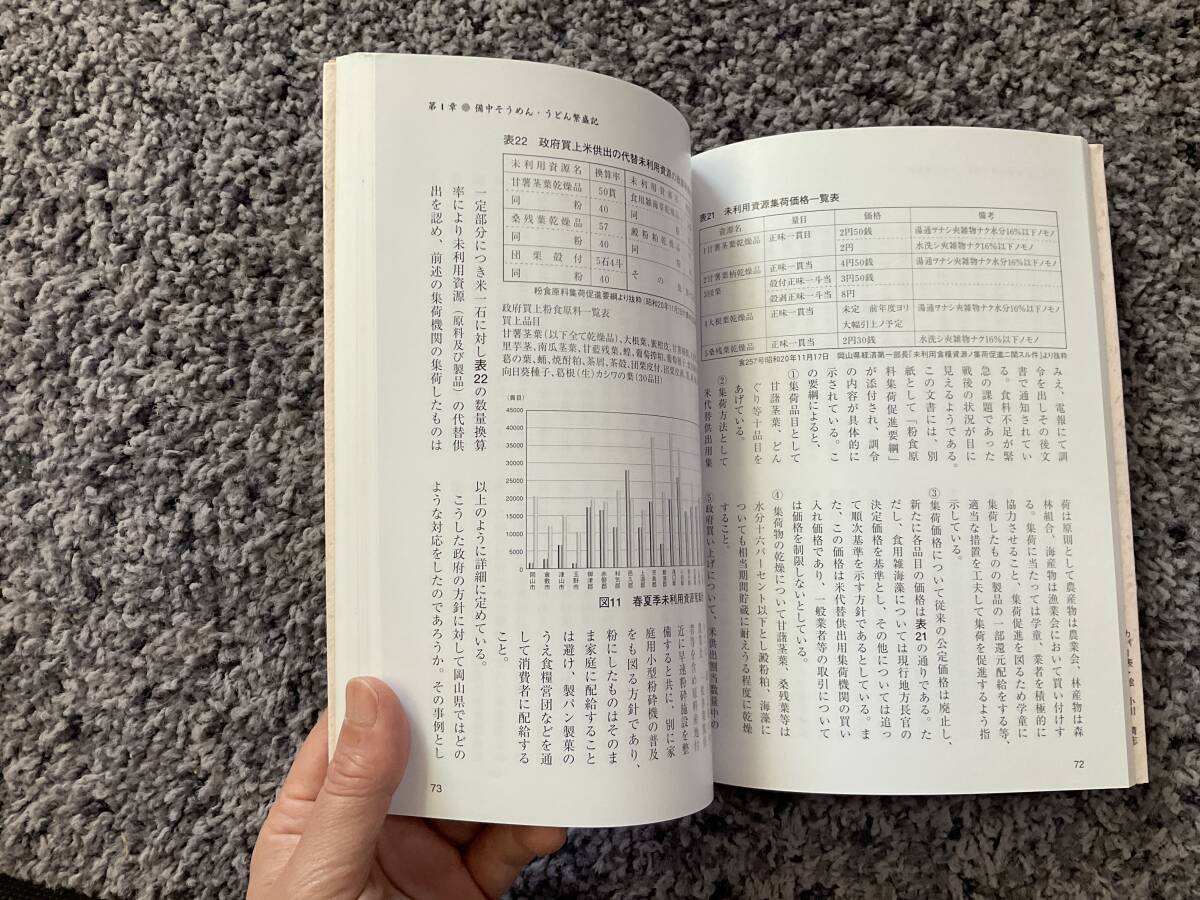 表21 未利用資源集荷価格一覧表
資源名 量目 価格 備考
1甘薯茎葉乾燥品 正味一貫目 2円50銭 湯通ヲナシ夾雑物ナク水分16%以下ノモノ
2円 水洗シ夾雑物ナク水分16%以下ノモノ
2甘薯葉柄乾燥品 正味一貫当 4円50銭 湯通ヲナシ夾雑物ナク水分16%以下ノモノ
3団栗 殻付正味一斗当 3円50銭
殻剥正味一斗当 8円
4大根葉乾燥品 正味一貫当 未定 前年度ヨリ 湯通ヲナシ夾雑物ナク水分16%以下ノモノ
大幅引上ノ予定
5桑残葉乾燥品 正味一貫当 2円30銭 水洗シ夾雑物ナク水分16%以下ノモノ
食257号昭和20年11月17日 岡山県経済第一部長「未利用食糧資源ノ集荷促進ニ関スル件」より抜粋
みえ、電報にて訓
令を出しその後文
書で通知されてい
る。食料不足が緊
急の課題であった
戦後の状況が目に
見えるようである。
この文書には、別
紙として「粉食原
料集荷促進要綱」
が添付され、訓令
の内容が具体的に
示されている。こ
の要綱によると、
①集荷品目として
甘藷茎葉、どん
ぐり等十品目を
あげている。
②集荷方法として
米代替供出用集
荷は原則として農産物は農業会、林産物は森
林組合、海産物は漁業会において買い付けす
る。集荷に当たっては学童、業者を積極的に
協力させること、集荷促進を図るため学童に
集荷したものの製品の一部還元配給をする等、
適当な措置を工夫して集荷を促進するよう指
示している。
③集荷価格について従来の公定価格は廃止し、
新たに各品目の価格は表21の通りである。た
だし、食用雑海藻については現行地方長官の
決定価格を基準とし、その他については追っ
て順次基準を示す方針であるとしている。ま
た、この価格は米代替供出用集荷機関の買い
入れ価格であり、一般業者等の取引について
は価格を制限しないとしている。
④集荷物の乾燥について甘藷茎葉、桑残葉等は
水分十六パーセント以下とし澱粉粕、海藻に
ついても相当期間貯蔵に耐えうる程度に乾燥
すること。
⑤政府買い上げについて、米供出割当数量中の
72
第1章 備中そうめん・うどん繁盛記
表22 政府買上米供出の代替未利用資源の
未利用資源名 換算率 未利用資源名
甘薯茎葉乾燥品 50貫 食用雑海草乾燥品
同 粉 40 同
桑残葉乾燥品 57 澱粉粕乾燥
同 粉 40 同
団栗殻付 5石4斗 その
同 粉 40
粉食原料集荷促進要綱より抜粋(昭和20年11月
政府買上粉食原料一覧表
買上品目
甘薯茎葉(以下全て乾燥品)、大根葉、蜜柑皮、甘藷
里芋茎、南瓜茎葉、甘藍残葉、蝗、葡萄搾粕、葡萄
葛の葉、蛹、焼酎粕、茶屑、茶殻、団栗皮付、団栗皮
向日葵種子、葛根(生)カシワの葉(30品目)
一定部分につき米一石に対し表22の数量換算
率により未利用資源(原料及び製品)の代替供
出を認め、前述の集荷機関の集荷したものは
(貫目)
45000
40000
35000
30000
25000
20000
15000
10000
5000
0
岡山市
倉敷市
津山市
玉野市
御津郡
赤磐郡
和気郡
邑久郡
上道郡
児島郡
都窪郡
浅口郡
図11 春夏季未利用資源
近に早速粉砕施設を整
備すると共に、別に家
庭用小型粉砕機の普及
をも図る方針であり、
粉にしたものはそのま
ま家庭に配給すること
は避け、製パン製菓の
うえ食糧営団などを通
して消費者に配給する
こと。
以上のように詳細に定めている。
こうした政府の方針に対して岡山県ではどの
ような対応をしたのであろうか。その事例とし
73